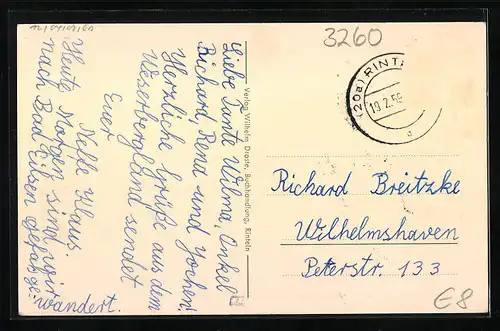 3260
(20a) RINT
19.2.56
a
Liebe Tante Wilma, Onkel
Richard, Rena und Jochen!
Herzliche Grüße aus dem
Weserbergland sendet
Euer
Neffe Klaus.
Heute Morgen sind wir
nach Bad Eilsen gefahr
wandert.
Verlag Wilhelm Droste, Buchhandlung, Rinteln
Richard Breitzke
Wilhelmshaven
Peterstr. 133
E8